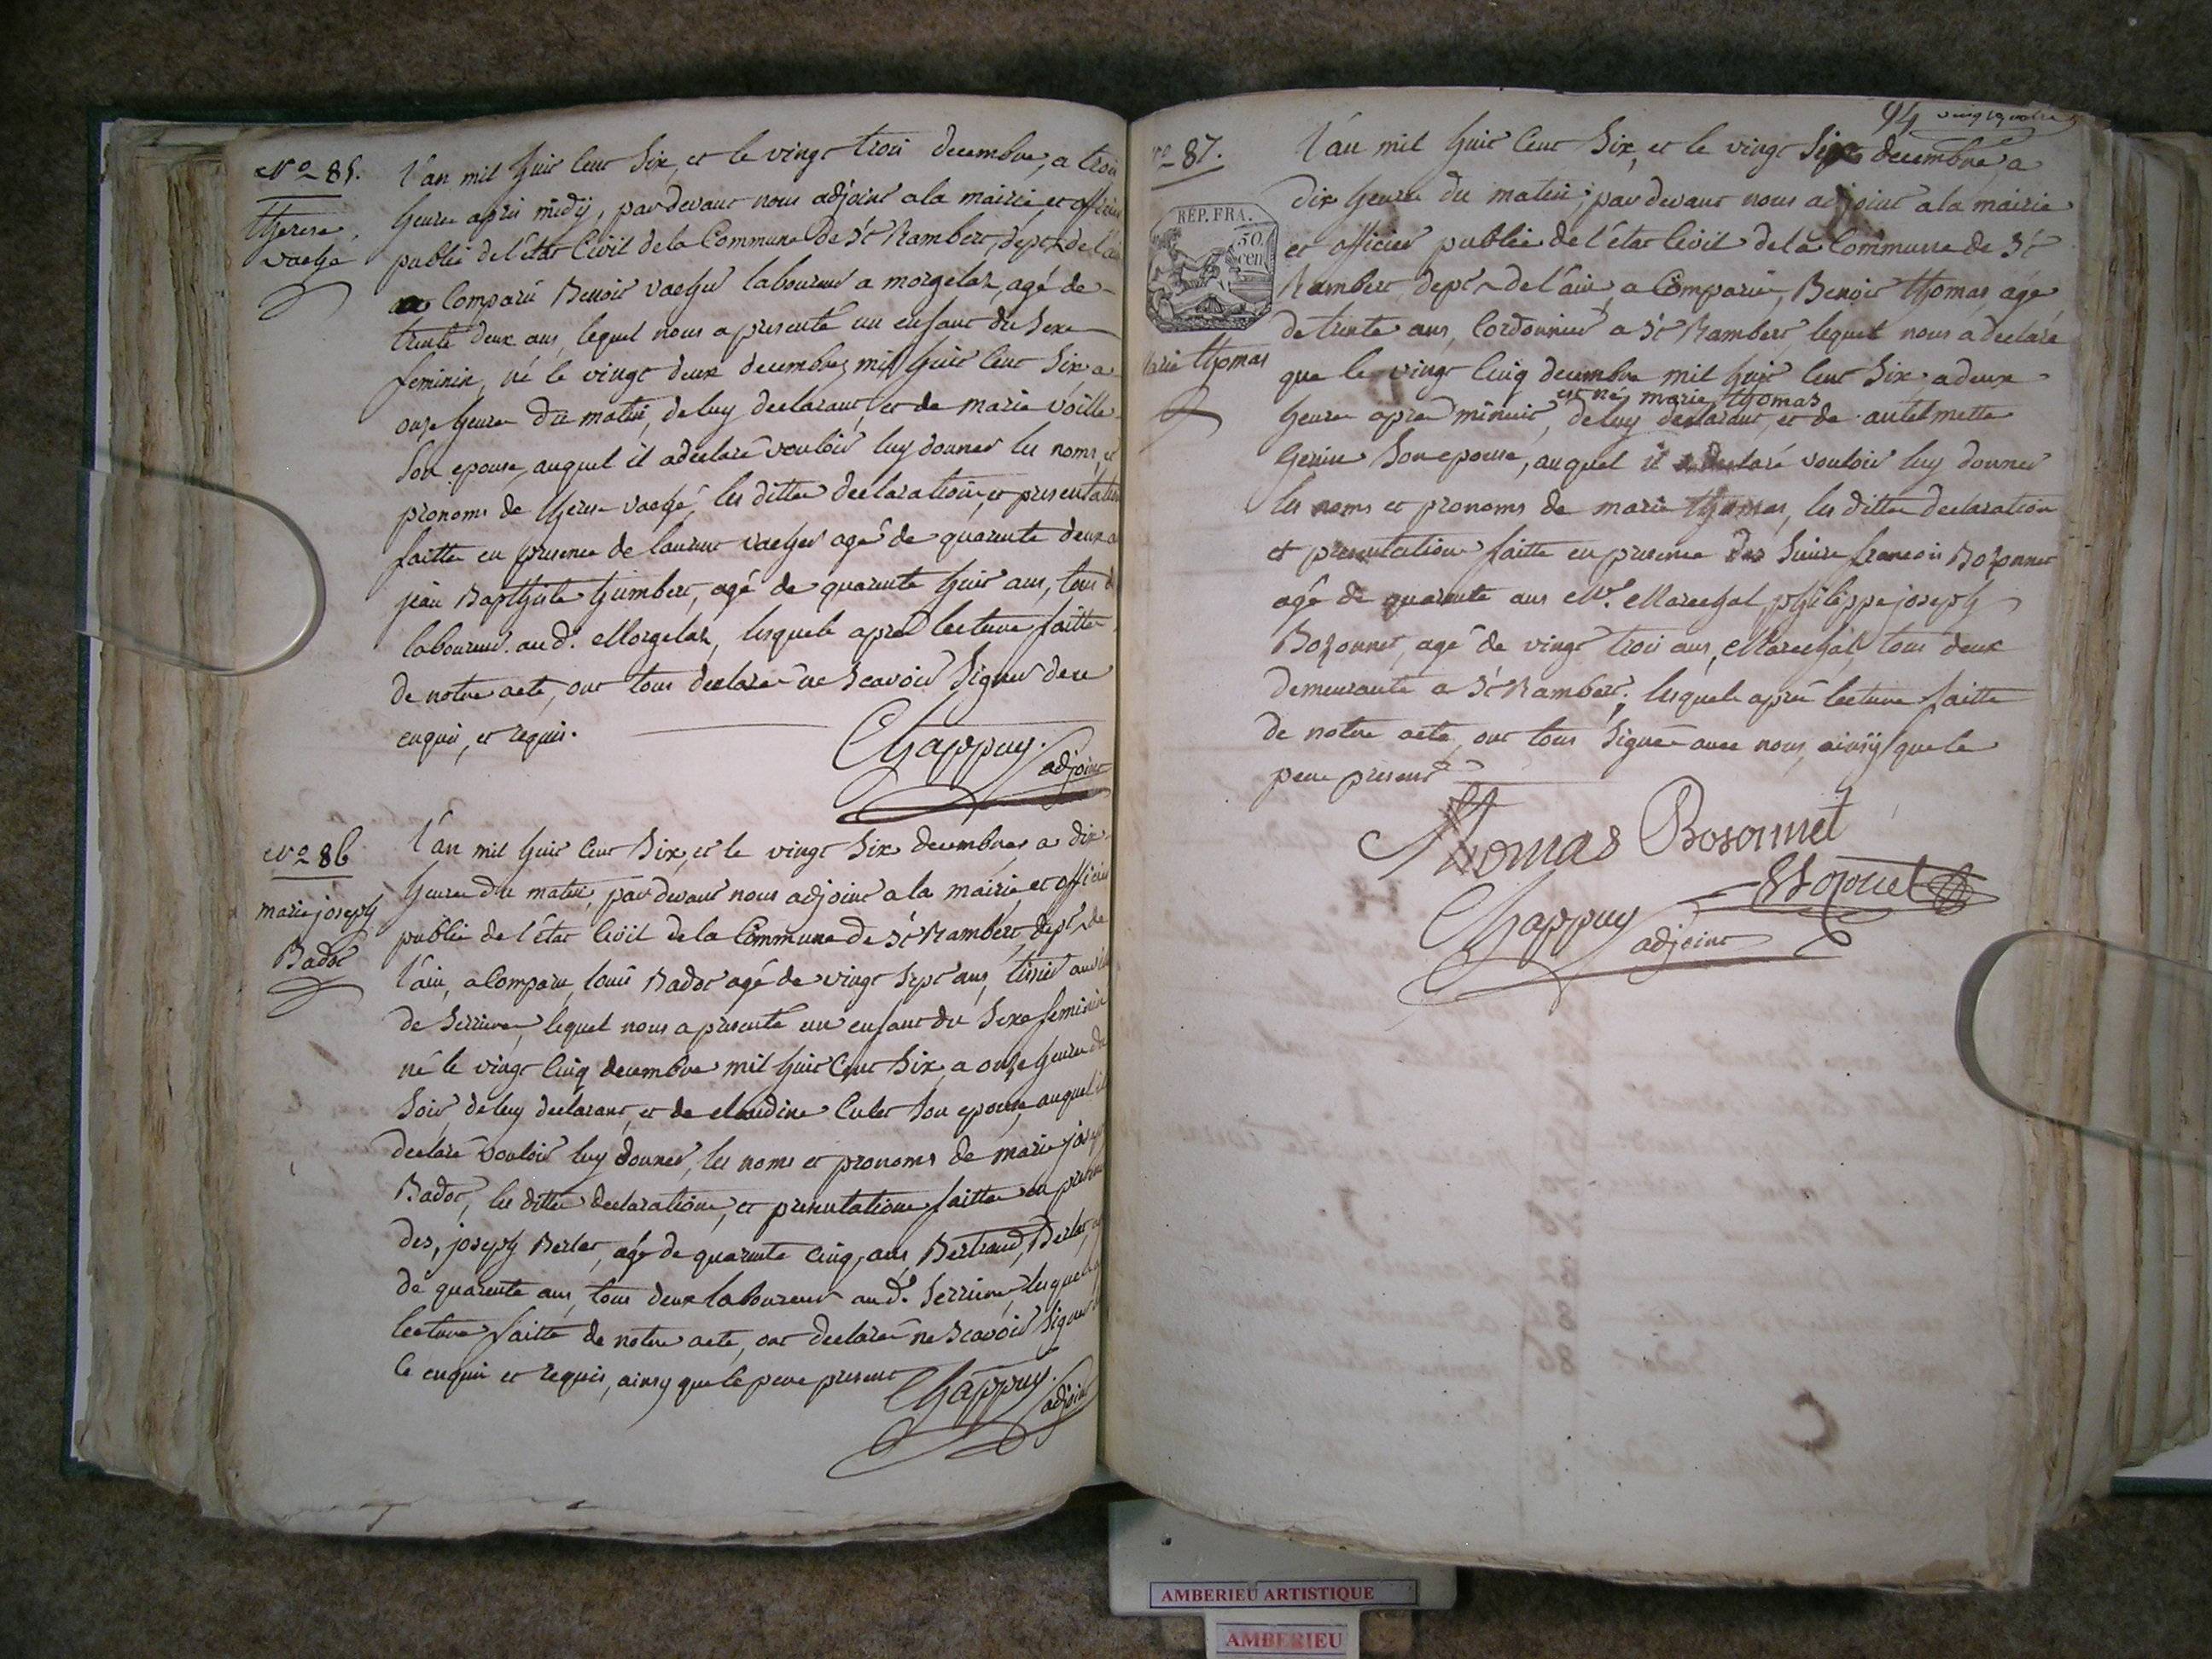 N.º 85.
Therese
vaché
l'an mil huit cent six, et le vingt trois decembre, a trois
heures après midÿ, pardevant nous adjoint a la mairie, et officier
public de l'état Civil de la Commune de St Rambert, dept de l'ain
a Comparu Benoit vacher laboureur a morgelaz, agé de
trente deux ans, lequel nous a presenté un enfant du sexe
feminin, né le vingt deux decembre, mil huit cent six a
onze heures du matin, de luy declarant, et de marie voille
son epouse, auquel il a declaré vouloir luy donner les noms et
pronoms de therese vaché, les dittes declaration, et presentation
faitte en presence de laurent vacher agé de quarante deux ans
jean Baptiste humbert, agé de quarante huit ans, tous d
laboureur au d. Morgelaz, lesquels après lecture faitte
de notre acte, ont tous declaré ne scavoir signer de ce
enquis, et requis.
Chappuy.
adjoint
N.º 86
marie joseph
Badot
l'an mil huit cent six, et le vingt six decembres a dix
heures du matin, pardevant nous adjoint a la mairie, et officier
public de l'état Civil de la Commune de St Rambert, dept de
l'ain, a Comparu, louis Badot agé de vingt sept ans, tissier au
de Serrieres, lequel nous a presenté un enfant du sexe feminin
né le vingt cinq decembre mil huit cent six, a onze heures du
soir, de luy declarant, et de claudine Culet son epouse, auquel il
declaré vouloir luy donner, les noms et pronoms de marie joseph
Badot, les dittes declaration, et presentation faitte en presence
des, joseph Berlet, agé de quarante cinq, ans, Bertrand, Berlet,
de quarante ans, tous deux laboureur au d. Serrieres, lesquels
lecture faitte de notre acte, ont declaré ne scavoir signer
ce enquis et requis, ainsy que le pere present
Chappuy.
adjoint
94
no 87.
REP. FRA.
50
cen
Marie Thomas
l'an mil huit cent six, et le vingt sept decembre, a
dix heures du matin, pardevant nous adjoint a la mairie
et officier public de l'état Civil de la Commune de St
Rambert, dept de l'ain, a Comparu, Benoit Thomas agé
de trente ans, Cordonnier a St Rambert lequel nous a declaré
que le vingt cinq decembre mil huit cent six, a deux
est né marie thomas
heures apres minuit, de luy declarant, et de antelmette
Genin son epouse, auquel il a declaré vouloir luy donner
les noms et pronoms de marie thomas, les dittes declaration
et presentation faitte en presence des suivis francois Bozonnet
agé de quarante ans Mr. Marechal, philippe joseph
Bozonnet, agé de vingt trois ans, Marechal, tous deux
demeurants a St Rambert; lesquels après lecture faitte
de notre acte, ont tous signé avec nous, ainsÿ que le
pere present
Thomas Bosonnet
Bozonnet
Chappuy
adjoint
AMBERIEU ARTISTIQUE
AMBERIEU